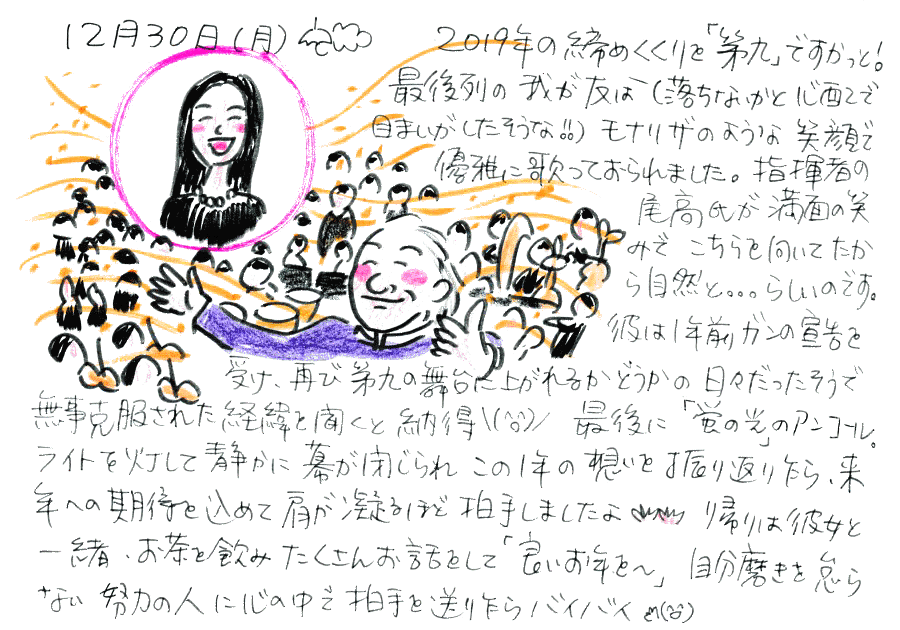 12月30日(月)
2019年の締めくくりを「第九」ですかっと!
最後列の我が友は(落ちないかと心配で
目まいがしたそうな!!)モナリザのような笑顔で
優雅に歌っておられました。指揮者の
尾高氏が満面の笑
みで こちらを向いてたか
ら自然と。。。らしいのです。
彼は1年前ガンの宣告を
受け、再び第九の舞台に上がれるかどうかの日々だったそうで
無事克服された経緯を聞くと納得\(^^)/ 最後に「蛍の光」のアンコール。
ライトを灯して静かに幕が閉じられこの1年の想いを振り返り乍ら、来
年への期待を込めて肩が凝るほど拍手しましたよ 帰りは彼女と
一緒、お茶を飲みたくさんお話をして「良いお年を〜」自分磨きを怠ら
ない努力の人に心の中で拍手を送り乍らバイバイm(^^)